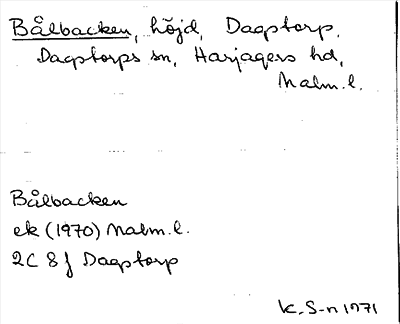 Bålbacken, höjd, Dagstorp,
Dagstorps sn, Harjagers hd,
Malm.l.
Bålbacken
ek (1970) Malm.l.
2C 8 f Dagstorp
K. S-n 1971